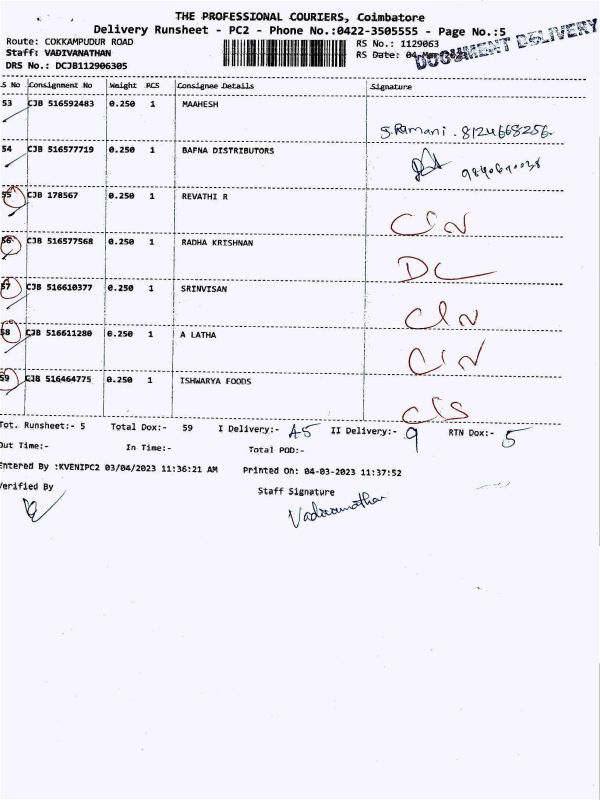 THE PROFESSIONAL COURIERS, Coimbatore
Delivery Runsheet - PC2 - Phone No.:0422-3505555 - Page No.:5
Route: COKKAMPUDUR ROAD RS No.: 1129063
Staff: VADIVANATHAN RS Date: 04-Mar
DOCUMENT DELIVERY
DRS No.: DCJB112906305
S No Consignment No Weight PCS Consignee Details Signature
53 CJB 516592483 0.250 1 MAAHESH
S. Ramani. 8124668256.
54 CJB 516577719 0.250 1 BAFNA DISTRIBUTORS
55 CJB 178567 0.250 1 REVATHI R
CIN
56 CJB 516577568 0.250 1 RADHA KRISHNAN
DC
57 CJB 516610377 0.250 1 SRINVISAN
CIN
58 CJB 516611280 0.250 1 A LATHA
CIN
59 CJB 516464775 0.250 1 ISHWARYA FOODS
CIS
Tot. Runsheet:- 5 Total Dox:- 59 I Delivery:- 45 II Delivery:- 9 RTN Dox:- 5
Out Time:- In Time:- Total POD:-
Entered By :KVENIPC2 03/04/2023 11:36:21 AM Printed On: 04-03-2023 11:37:52
Verified By Staff Signature
Vadivanathan